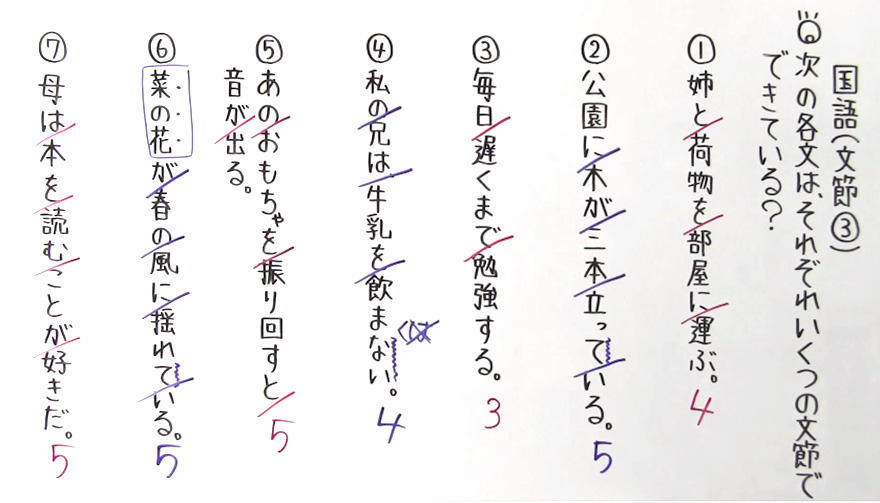 国語(文節③)
次の各文は、それぞれいくつの文節で
できている?
①姉と荷物を部屋に運ぶ。4
②公園に木が三本立っている。5
③毎日遅くまで勉強する。3
④私の兄は牛乳を飲まない。4
⑤あのおもちゃを振り回すと
音が出る。5
⑥菜の花が春の風に揺れている。5
⑦母は本を読むことが好きだ。5